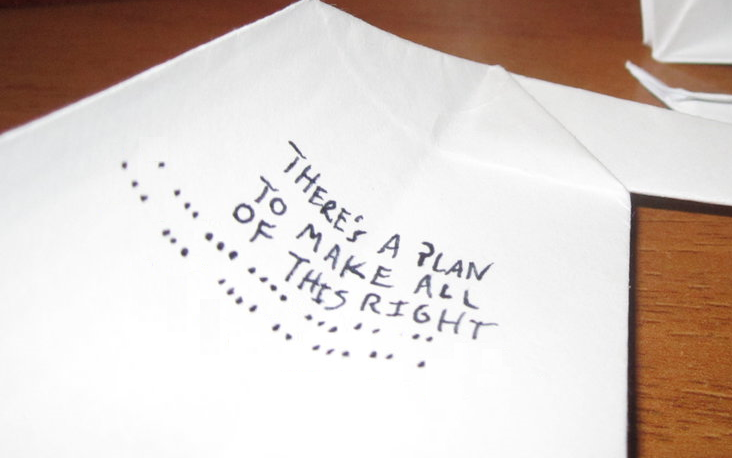 THERE'S A PLAN
TO MAKE ALL
OF THIS RIGHT